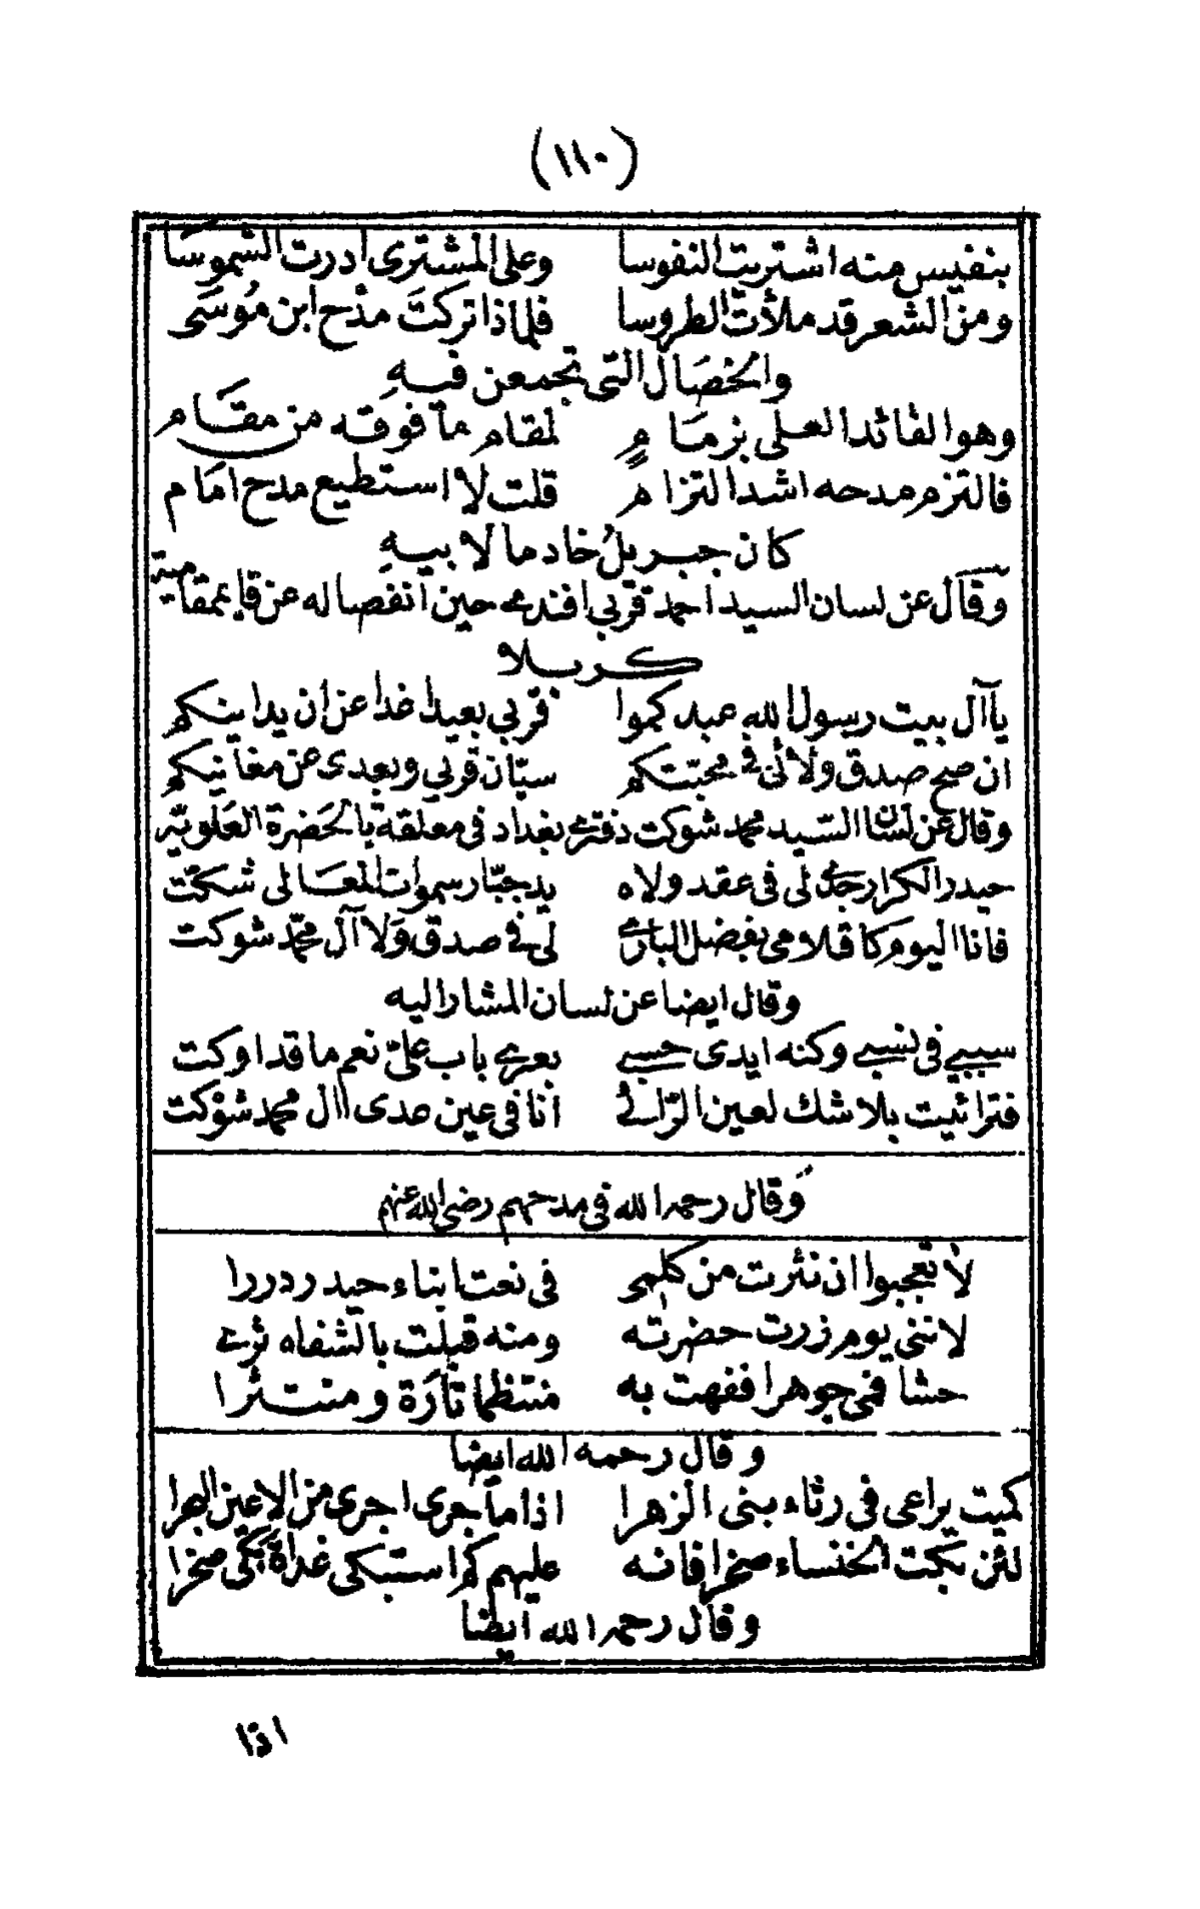 (١١٠)
بنفيس منه اشتريت النفوسا وعلى المشترى ادرت الشموسا
ومن الشعر قد ملأت الطروسا فلماذا تركتَ مدْح ابن مُوسَى
والخصَال التى تجمعن فيهِ
وهو القائد العلى بزمَامٍ لمقام ما فوقه من مقَام
فالتزم مدحه اشد التزام قلت لا استطيع مدح امَام
كان جبريلُ خادما لابيهِ
وقال عن لسان السيد احمد قربى افندى حين انفصاله عن قايمقامية
كربلا
يا آل بيت رسول الله عبدكموا قربى بعيدا غدا عن ان يدانيكم
ان صح صدق ولائى فى محبّتكم سيّان قربى وبعدى عن مغانيكم
وقال عن لسان السّيد محمد شوكت دفترى بغداد فى معلقة بالحَضرة العَلويّه
حيدر الكرار جدّى لى فى عقد ولاه يد جبّار سموات المعَالى شكّت
فانا اليوم كاقلامى بفضل البارى لى فى صدق وَلا آل محمّد شوكت
وقال ايضا عن لسان المشار اليه
سببى فى نسبى وكنه ايدى حسبى بعرى باب علىّ نعم ما قد اوكت
فترا ثيت بلا شك لعين الرّائى أنا فى عين عدى اال محمد شوْكت
وقال رحمه الله فى مدحهم رضى الله عنهم
لا تعجبوا ان نثرت من كلمى فى نعت ابناء حيدر دررا
لاننى يوم زرت حضرته ومنه قبلت بالشفاه ثرى
حشا فمى جوهرا ففهت به منتظما تارَة ومنتثرا
وقال رحمه الله ايضا
كميت يراعى فى رثاء بنى الزهرا اذا ما جرى اجرى من الاعين البحرا
لئن بكت الخنساء صخرا فانه عليهم كم استبكى غداة بكى صخرا
وقال رحمه الله ايضا
اذا